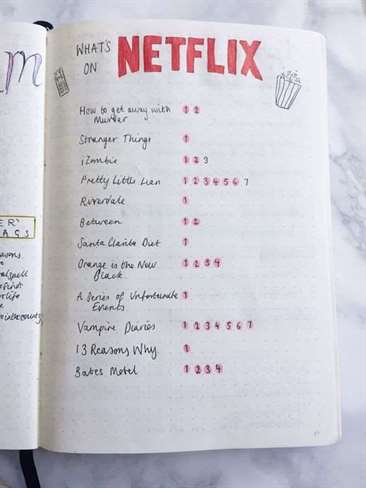 WHAT'S
ON
NETFLIX
How to get away with 1 2
Murder
Stranger Things 1
iZombie 1 2 3
Pretty Little Liars 1 2 3 4 5 6 7
Riverdale 1
Between 1 2
Santa Clarita Diet 1
Orange is the New 1 2 3 4
Black
A Series of Unfortunate 1
Events
Vampire Diaries 1 2 3 4 5 6 7
13 Reasons Why 1
Bates Motel 1 2 3 4